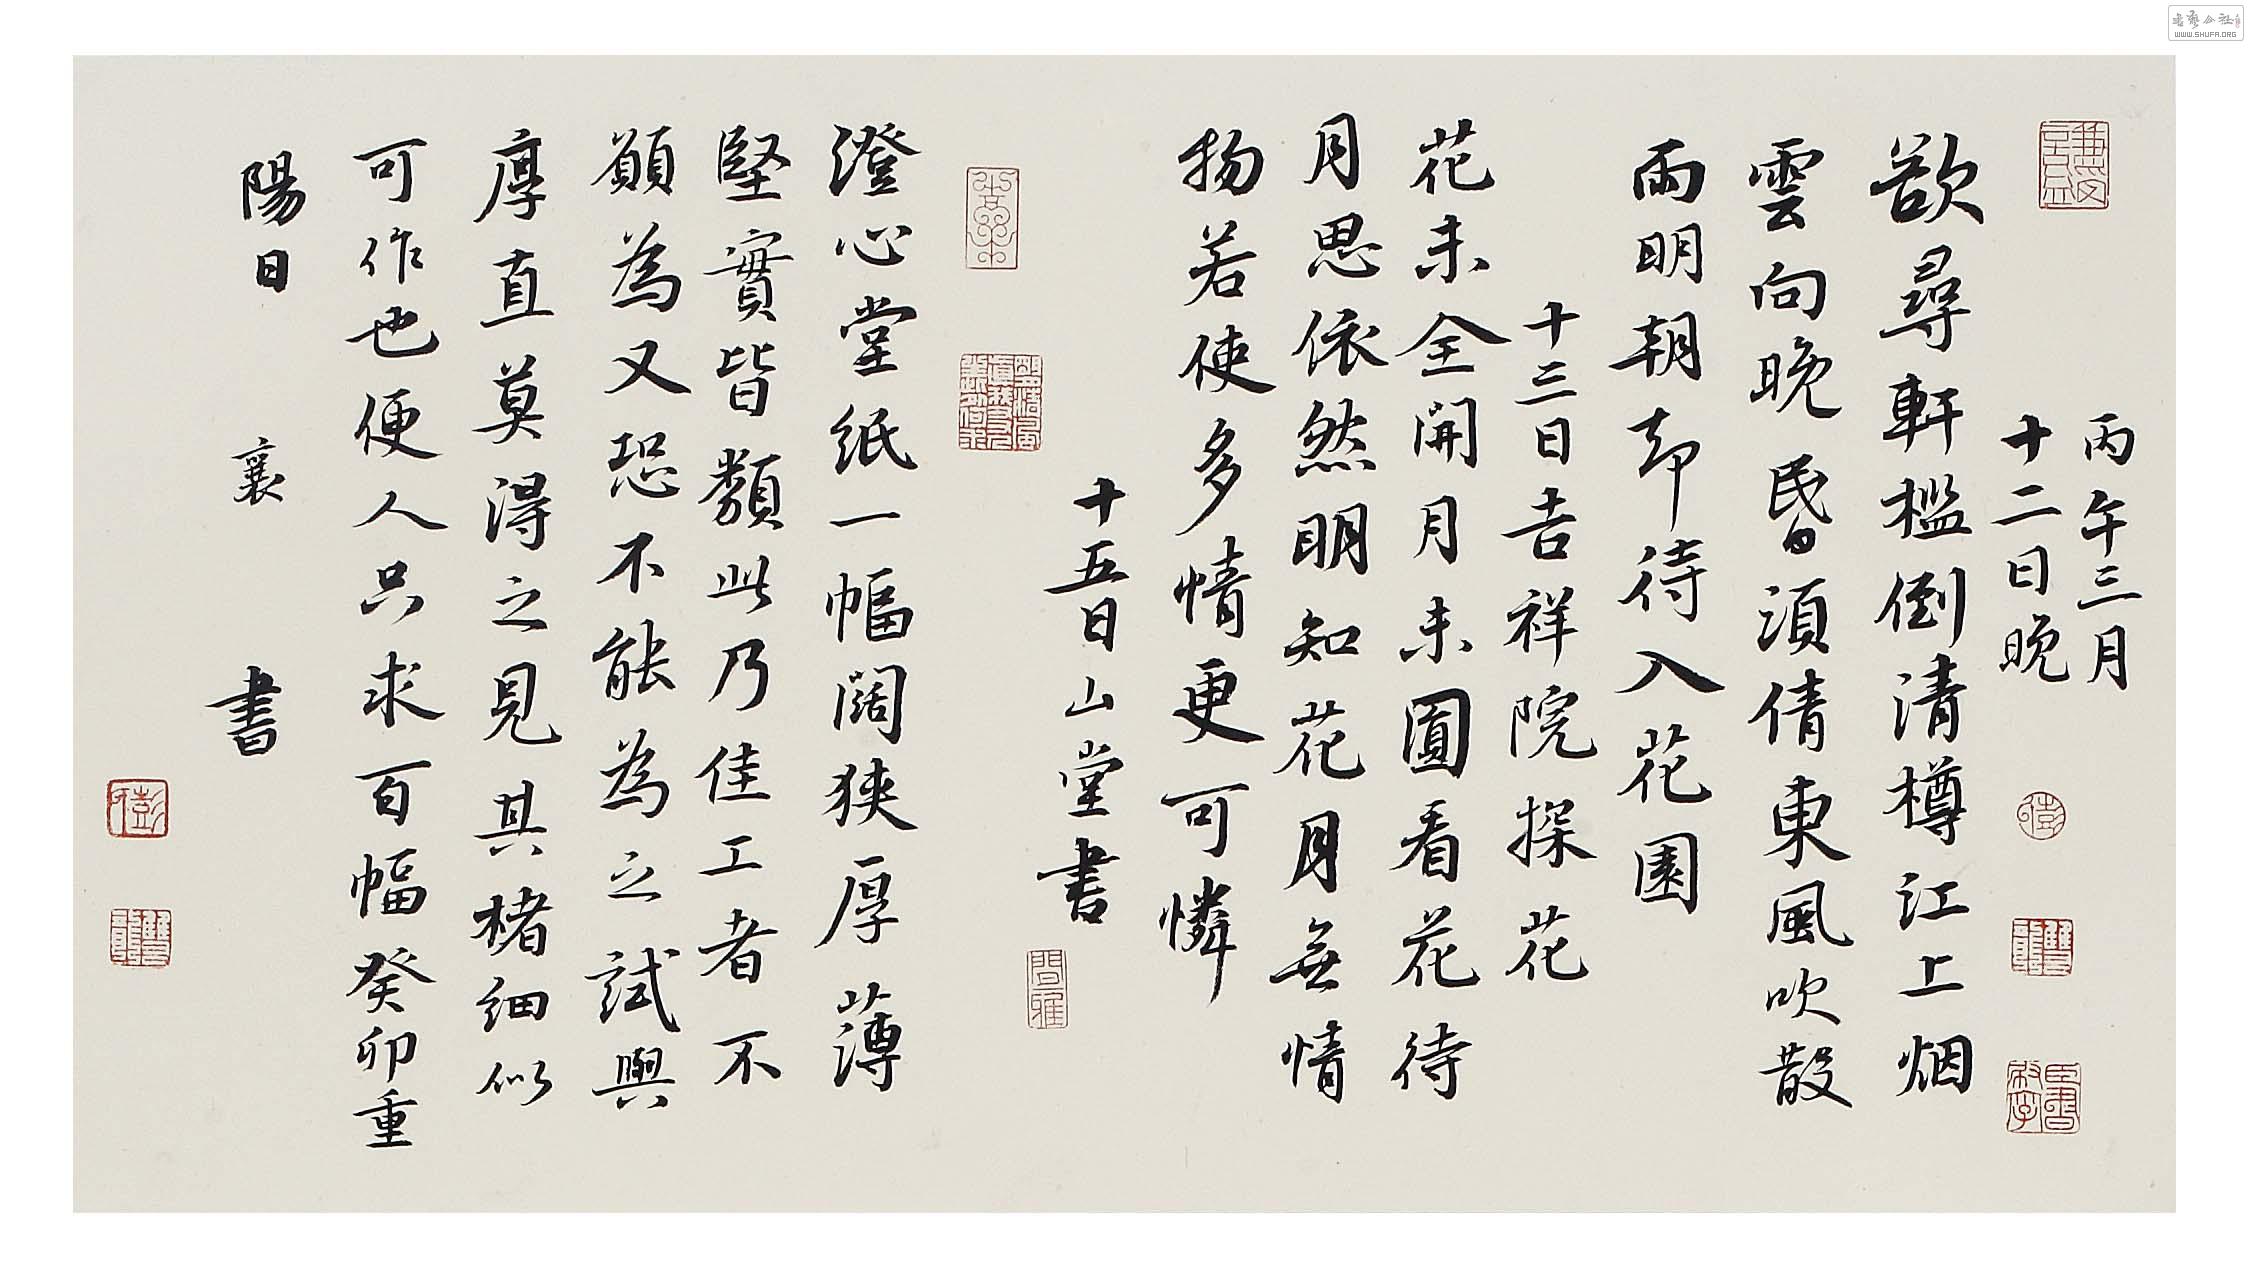 丙午三月
十二日晚
欲尋軒檻倒清樽江上烟
雲向晚昬須倩東風吹散
雨明朝却待入花園
十三日吉祥院探花
花未全開月未圓看花待
月思依然明知花月無情
物若使多情更可憐
十五日山堂書
澄心堂紙一幅闊狹厚薄
堅實皆類此乃佳工者不
願為又恐不能為之試與
厚直莫得之見其楮細似
可作也便人只求百幅癸卯重
陽日 襄 書
WWW.SHUFA.ORG